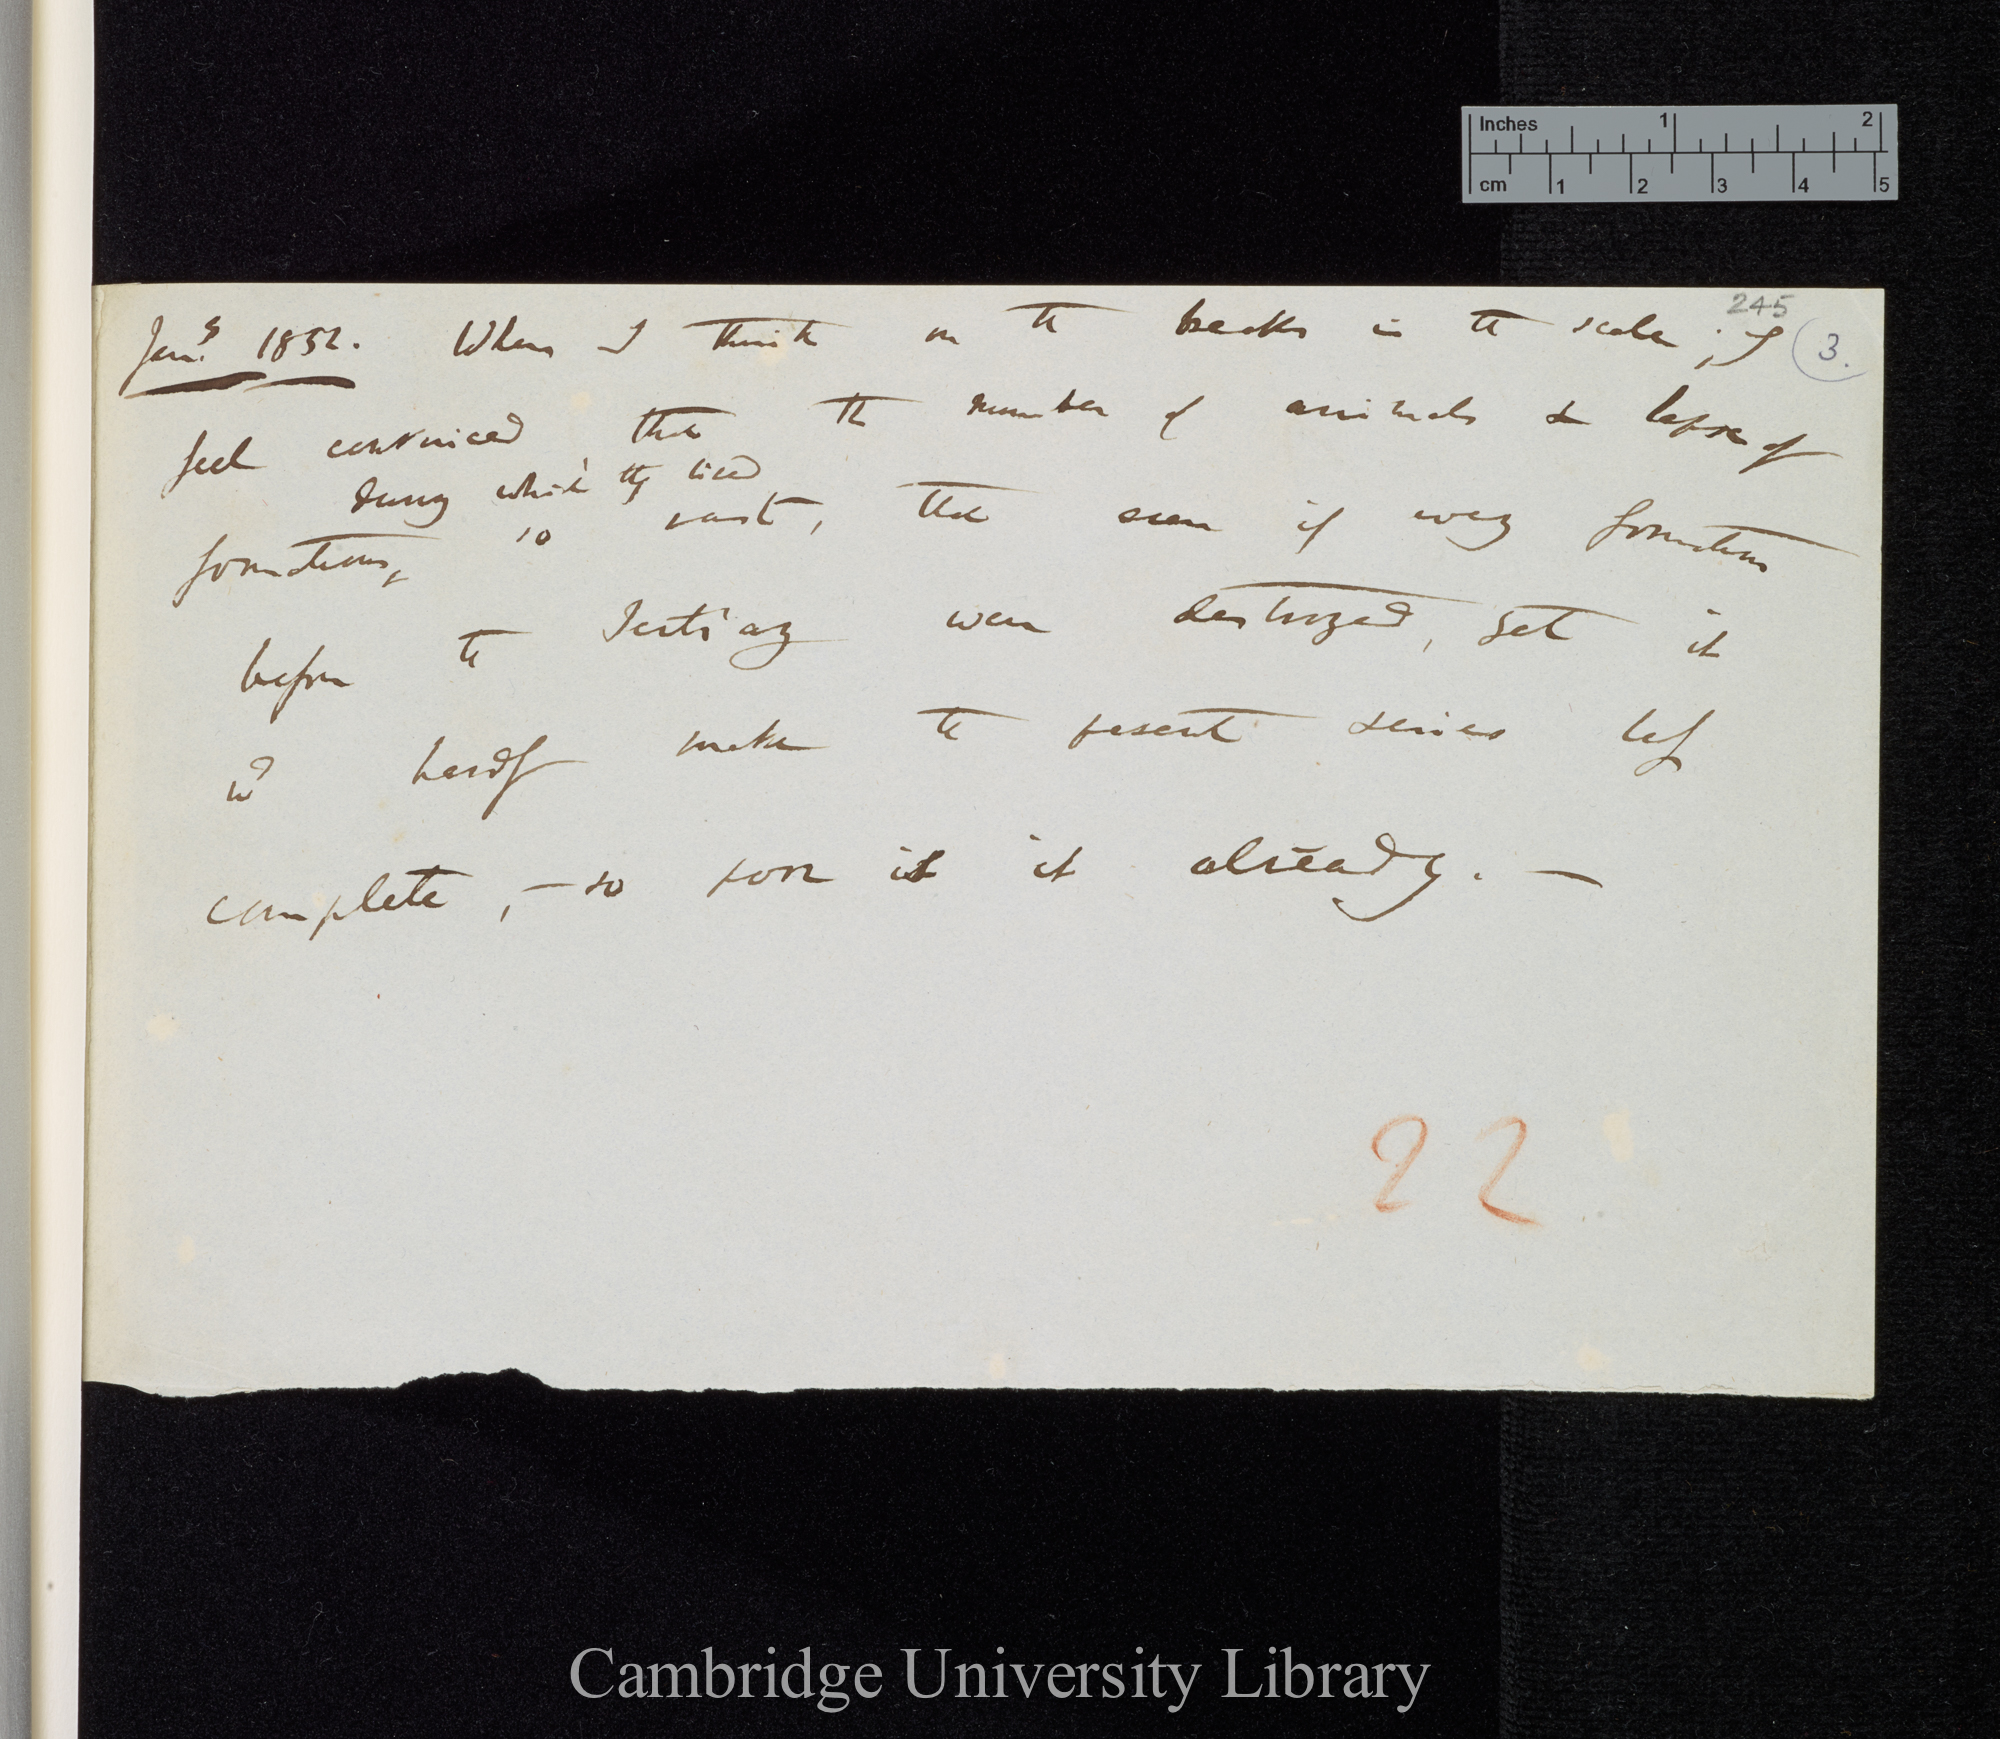 Inches 1 2
cm 1 2 3 4 5
245
Jany 1852. When I think on the breaks in the scale; I (3.
feel convinced that the number of animals & lapse of
during which they lived
formations, so vast, that even if every formation
before the Tertiary were destroyed, yet it
wd hardly make the present series less
complete, — so poor is it already. —
22
Cambridge University Library